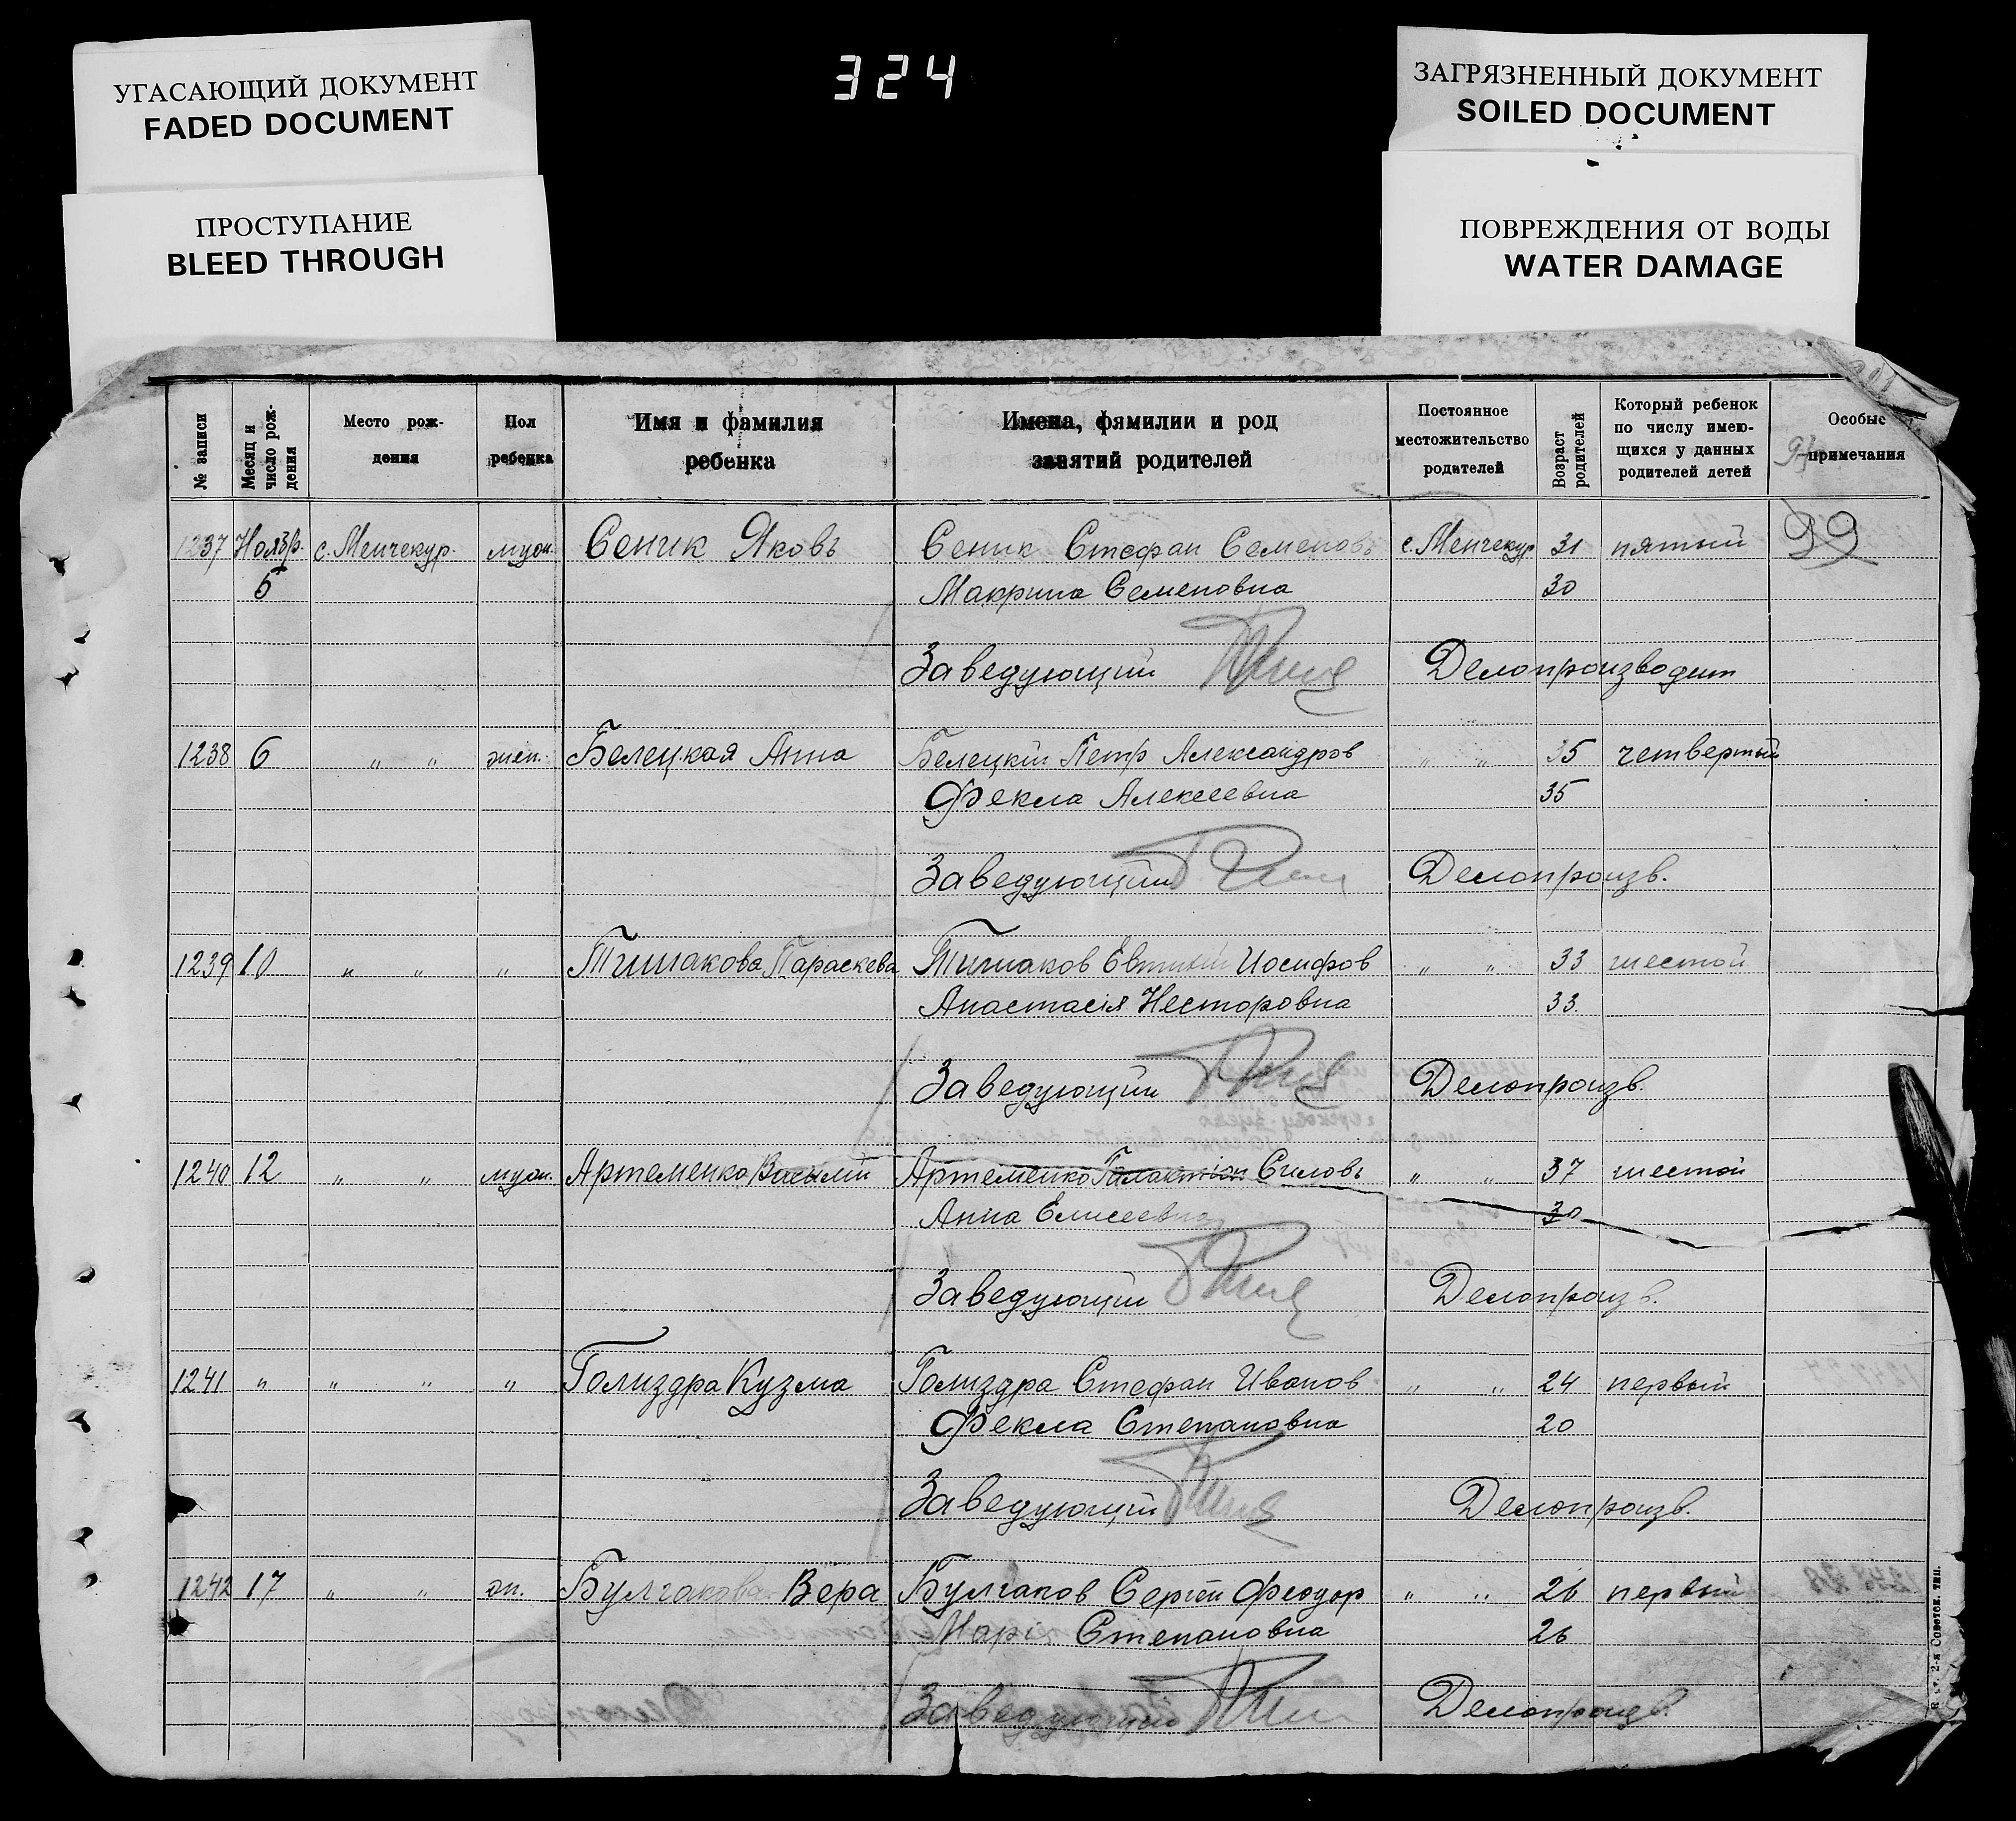 324
УГАСАЮЩИЙ ДОКУМЕНТ
FADED DOCUMENT
ПРОСТУПАНИЕ
BLEED THROUGH
ЗАГРЯЗНЕННЫЙ ДОКУМЕНТ
SOILED DOCUMENT
ПОВРЕЖДЕНИЯ ОТ ВОДЫ
WATER DAMAGE
№ записи
Месяц и число рождения
Место рож-
дения
Пол
ребенка
Имя и фамилия
ребенка
Имена, фямилии и род
занятий родителей
Постоянное
местожительство
родателей
Возраст родителей
Который ребенок
по числу имею-
щихся у данных
родителей детей
Особые
примечания
1237 Ноябр. с. Менчекур. муж. Сеник Яковъ Сеник Стефан Семеновъ с. Менчекур 31 пятый 99
5 Макрина Семеновна 30
Заведующий Делопроизводит
1238 6 " " жен. Белецкая Анна Белецкий Петр Александров " " 35 четвертый
Фекла Алексеевна 35
Заведующий Делопроизв.
1239 10 " " " Тишакова Параскева Тишаков Евтихий Иосифов " " 33 шестой
Анастасія Несторовна 33.
Заведующий Делопроизв.
1240 12 " " муж. Артеменко Василий Артеменко Галактіон Силовъ " " 37 шестой
Анна Елисеевна 30
Заведующий Делопроизв.
1241 " " " " Голиздра Кузма Голиздра Стефан Иванов " " 24 первый
Фекла Степановна 20
Заведующий Делопроизв.
1242 17 " " ж. Булгакова Вера Булгаков Сергій Феодор " " 26 первый
Марія Степановна 26
Заведующий Делопроизв.
2-я Советск. тип.